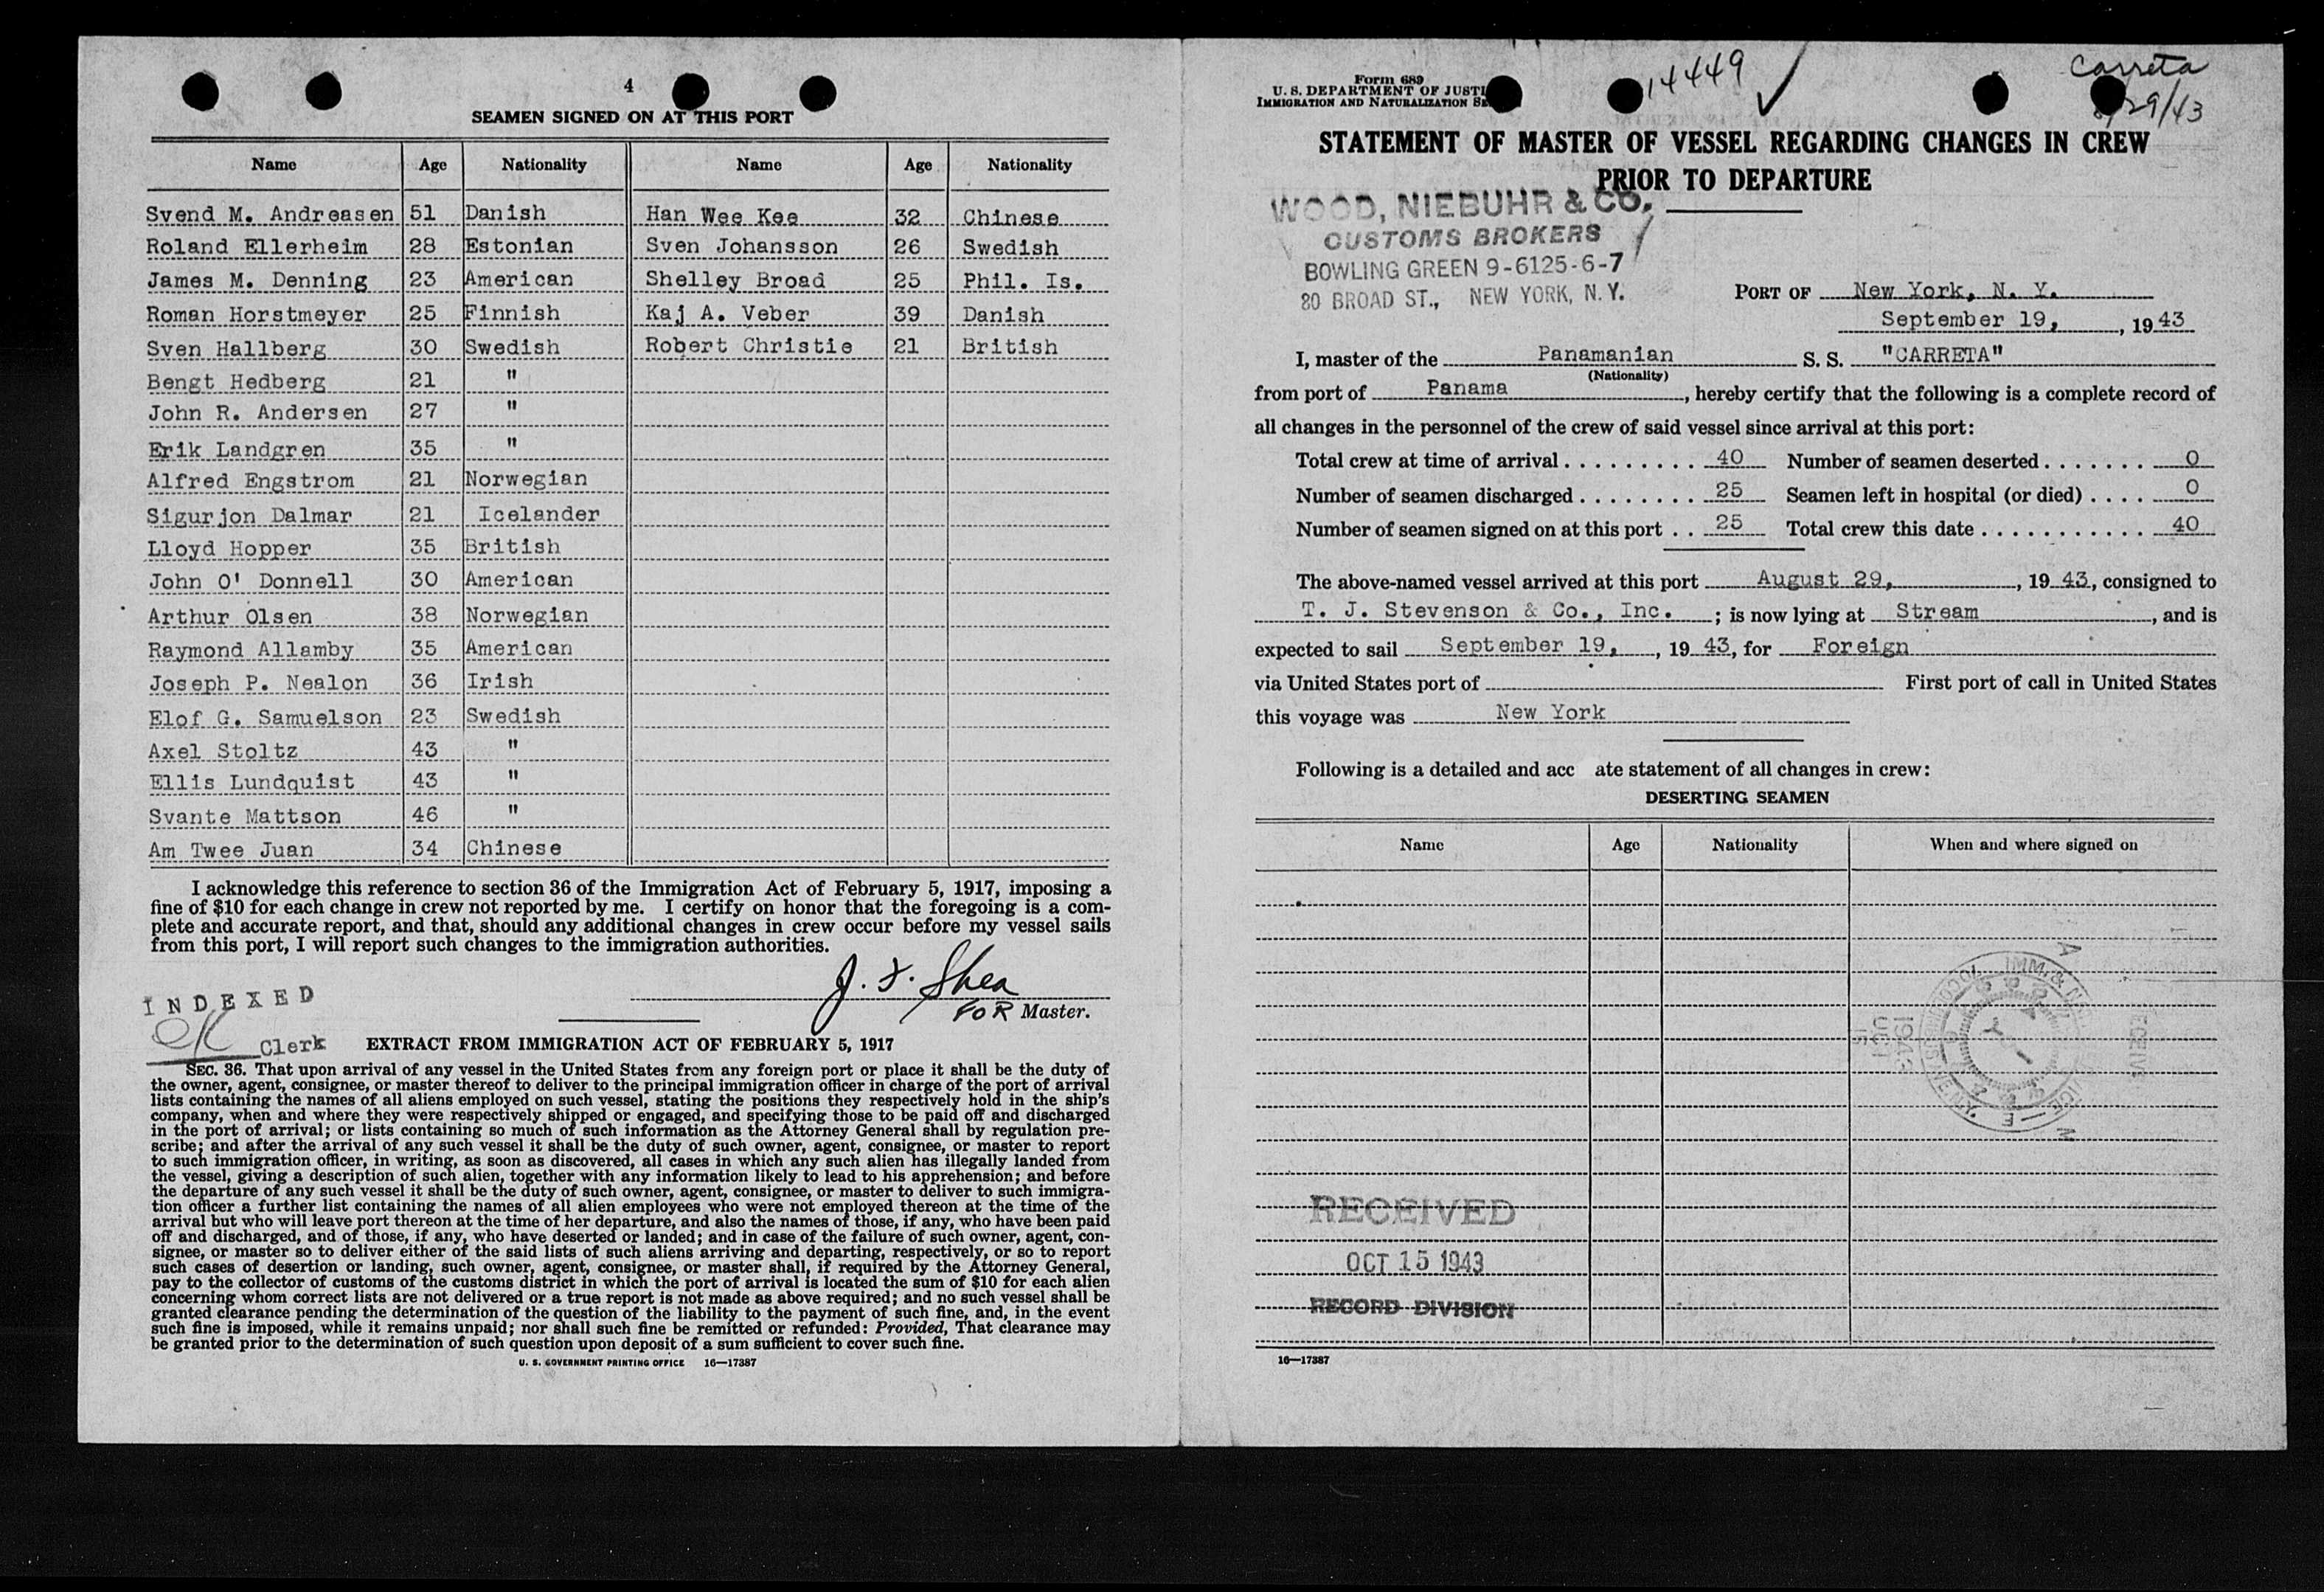 4
SEAMEN SIGNED ON AT THIS PORT
Name Age Nationality Name Age Nationality
Svend M. Andreasen 51 Danish Han Wee Kee 32 Chinese
Roland Ellerheim 28 Estonian Sven Johansson 26 Swedish
James M. Denning 23 American Shelley Broad 25 Phil. Is.
Roman Horstmeyer 25 Finnish Kaj A. Veber 39 Danish
Sven Hallberg 30 Swedish Robert Christie 21 British
Bengt Hedberg 21 "
John R. Andersen 27 "
Erik Landgren 35 "
Alfred Engstrom 21 Norwegian
Sigurjon Dalmar 21 Icelander
Lloyd Hopper 35 British
John O' Donnell 30 American
Arthur Olsen 38 Norwegian
Raymond Allamby 35 American
Joseph P. Nealon 36 Irish
Elof G. Samuelson 23 Swedish
Axel Stoltz 43 "
Ellis Lundquist 43 "
Svante Mattson 46 "
Am Twee Juan 34 Chinese
I acknowledge this reference to section 36 of the Immigration Act of February 5, 1917, imposing a
fine of $10 for each change in crew not reported by me. I certify on honor that the foregoing is a com-
plete and accurate report, and that, should any additional changes in crew occur before my vessel sails
from this port, I will report such changes to the immigration authorities.
J. F. Shea
FOR Master.
INDEXED
Clerk
EXTRACT FROM IMMIGRATION ACT OF FEBRUARY 5, 1917
SEC. 36. That upon arrival of any vessel in the United States from any foreign port or place it shall be the duty of
the owner, agent, consignee, or master thereof to deliver to the principal immigration officer in charge of the port of arrival
lists containing the names of all aliens employed on such vessel, stating the positions they respectively hold in the ship's
company, when and where they were respectively shipped or engaged, and specifying those to be paid off and discharged
in the port of arrival; or lists containing so much of such information as the Attorney General shall by regulation pre-
scribe; and after the arrival of any such vessel it shall be the duty of such owner, agent, consignee, or master to report
to such immigration officer, in writing, as soon as discovered, all cases in which any such alien has illegally landed from
the vessel, giving a description of such alien, together with any information likely to lead to his apprehension; and before
the departure of any such vessel it shall be the duty of such owner, agent, consignee, or master to deliver to such immigra-
tion officer a further list containing the names of all alien employees who were not employed thereon at the time of the
arrival but who will leave port thereon at the time of her departure, and also the names of those, if any, who have been paid
off and discharged, and of those, if any, who have deserted or landed; and in case of the failure of such owner, agent, con-
signee, or master so to deliver either of the said lists of such aliens arriving and departing, respectively, or so to report
such cases of desertion or landing, such owner, agent, consignee, or master shall, if required by the Attorney General,
pay to the collector of customs of the customs district in which the port of arrival is located the sum of $10 for each alien
concerning whom correct lists are not delivered or a true report is not made as above required; and no such vessel shall be
granted clearance pending the determination of the question of the liability to the payment of such fine, and, in the event
such fine is imposed, while it remains unpaid; nor shall such fine be remitted or refunded: Provided, That clearance may
be granted prior to the determination of such question upon deposit of a sum sufficient to cover such fine.
U. S. GOVERNMENT PRINTING OFFICE 16—17387
Form 689
U. S. DEPARTMENT OF JUSTI
IMMIGRATION AND NATURALIZATION SE
14449
Carreta
/29/43
STATEMENT OF MASTER OF VESSEL REGARDING CHANGES IN CREW
PRIOR TO DEPARTURE
WOOD, NIEBUHR & CO.
CUSTOMS BROKERS
BOWLING GREEN 9-6125-6-7
80 BROAD ST., NEW YORK, N. Y.
PORT OF New York, N. Y.
September 19, , 19 43
I, master of the Panamanian S. S. "CARRETA"
(Nationality)
from port of Panama , hereby certify that the following is a complete record of
all changes in the personnel of the crew of said vessel since arrival at this port:
Total crew at time of arrival 40 Number of seamen deserted 0
Number of seamen discharged 25 Seamen left in hospital (or died) 0
Number of seamen signed on at this port 25 Total crew this date 40
The above-named vessel arrived at this port August 29, , 19 43, consigned to
T. J. Stevenson & Co., Inc. ; is now lying at Stream , and is
expected to sail September 19, , 19 43, for Foreign
via United States port of First port of call in United States
this voyage was New York
Following is a detailed and acc ate statement of all changes in crew:
DESERTING SEAMEN
Name Age Nationality When and where signed on
RECEIVED
OCT 15 1943
RECORD DIVISION
16—17387